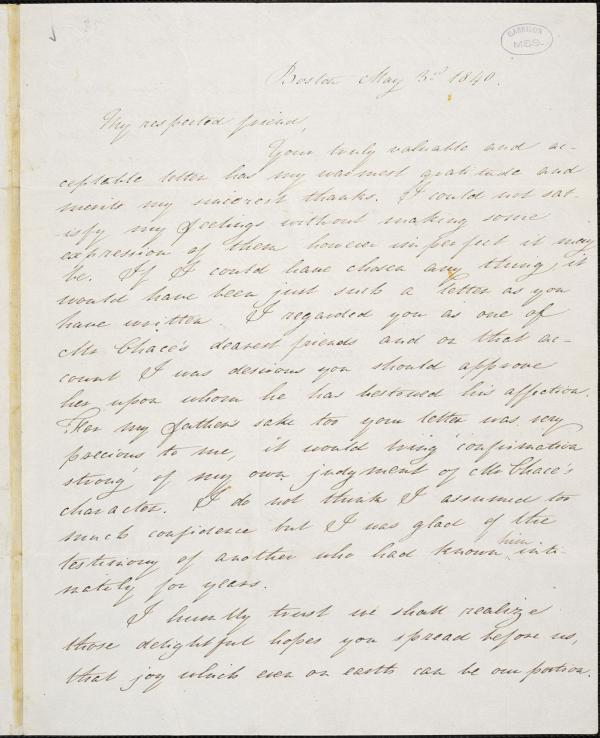 GARRISON
MSS.
Boston May 3rd 1840.
My respected friend,
Your truly valuable and ac-
ceptable letter has my warmest gratitude and
merits my sincerest thanks. I could not sat-
isfy my feelings without making some
expression of them however imperfect it may
be. If I could have chosen any thing, it
would have been just such a letter as you
have written. I regarded you as one of
Mr Chace's dearest friends and on that ac-
count I was desirous you should approve
her upon whom he has bestowed his affection.
For my father's sake too your letter was very
precious to me, it would bring 'confirmation
strong' of my own judgment of Mr Chace's
character. I do not think I assumed too
much confidence but I was glad of the
testimony of another who had known him inti-
mately for years.
I humbly trust we shall realize
those delightful hopes you spread before us,
that joy which even on earth can be our portion.